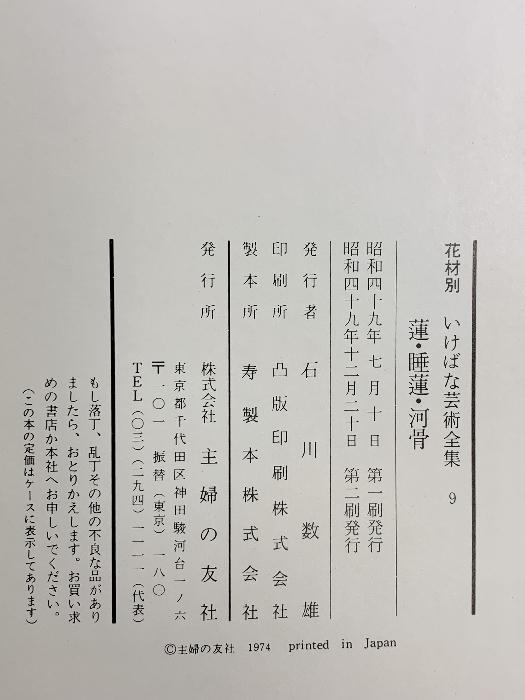 花材別 いけばな芸術全集 9
蓮・睡蓮・河骨
昭和四十九年 七 月 十 日 第一刷発行
昭和四十九年十二月二十日 第二刷発行
発行者 石川数雄
印刷所 凸版印刷株式会社
製本所 寿製本株式会社
発行所 株式会社 主婦の友社
東京都千代田区神田駿河台一ノ六
〒一〇一 振替(東京)一八〇
TEL(〇三)(二九四)一一一一(代表)
もし落丁、乱丁その他の不良な品があり
ましたら、おとりかえします。お買い求
めの書店か本社へお申しいでください。
(この本の定価はケースに表示してあります)
©主婦の友社 1974 printed in Japan